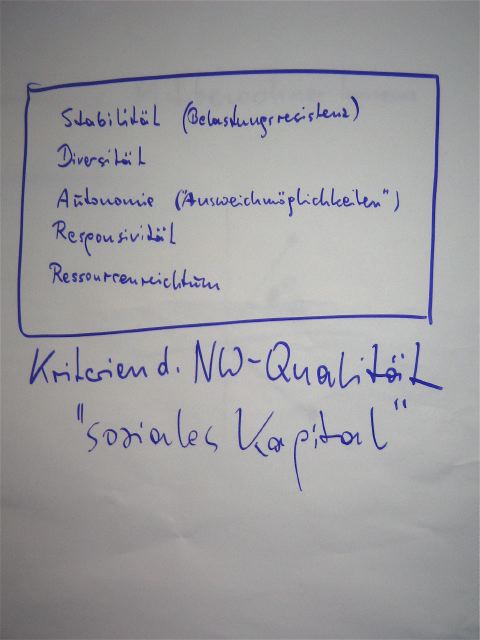 Stabilität (Belastungsresistenz)
Diversität
Autonomie ("Ausweichmöglichkeiten")
Responsivität
Ressourcenreichtum
Kriterien d. NW-Qualität
"soziales Kapital"